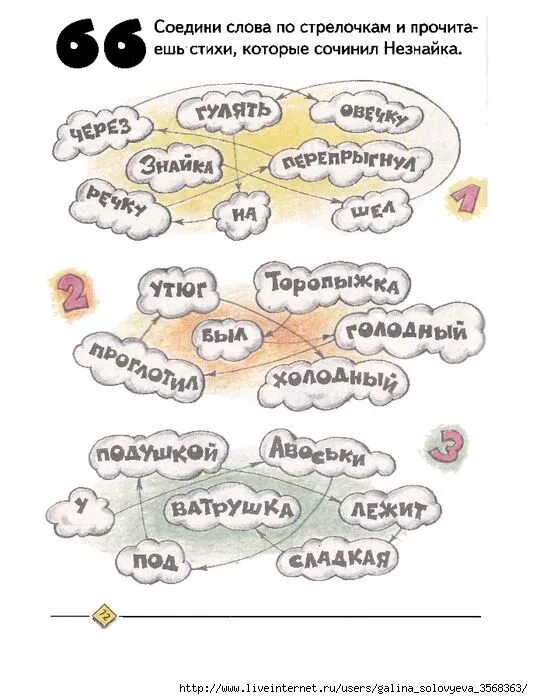 66
Соедини слова по стрелочкам и прочита-
ешь стихи, которые сочинил Незнайка.
ЧЕРЕЗ
ГУЛЯТЬ
ОВЕЧКУ
ЗНАЙКА
ПЕРЕПРЫГНУЛ
РЕЧКУ
НА
ШЕЛ
1
2
УТЮГ
ТОРОПЫЖКА
БЫЛ
ГОЛОДНЫЙ
ПРОГЛОТИЛ
ХОЛОДНЫЙ
3
ПОДУШКОЙ
АВОСЬКИ
У
ВАТРУШКА
ЛЕЖИТ
ПОД
СЛАДКАЯ
72
http://www.liveinternet.ru/users/galina_solovyeva_3568363/